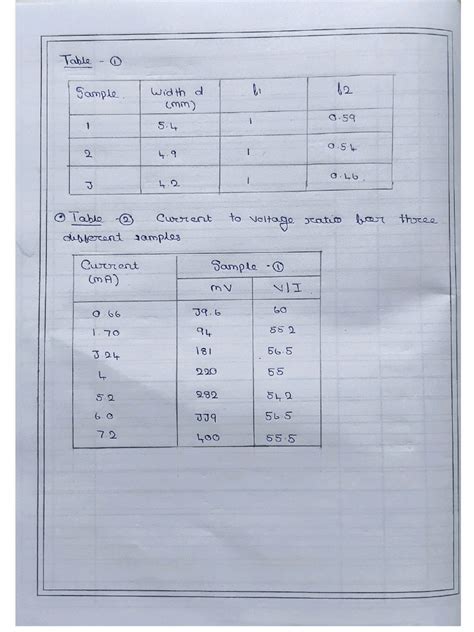 Table - ①
Sample Width d (mm) f1 f2
1 5.4 1 0.59
2 4.9 1 0.54
3 4.2 1 0.46
Table - ② Current to voltage ratio for three
different samples
Current (mA) Sample - ①
mV V/I
0.66 39.6 60
1.70 94 55.2
3.24 181 56.5
4 220 55
5.2 282 54.2
6.0 339 56.5
7.2 400 55.5